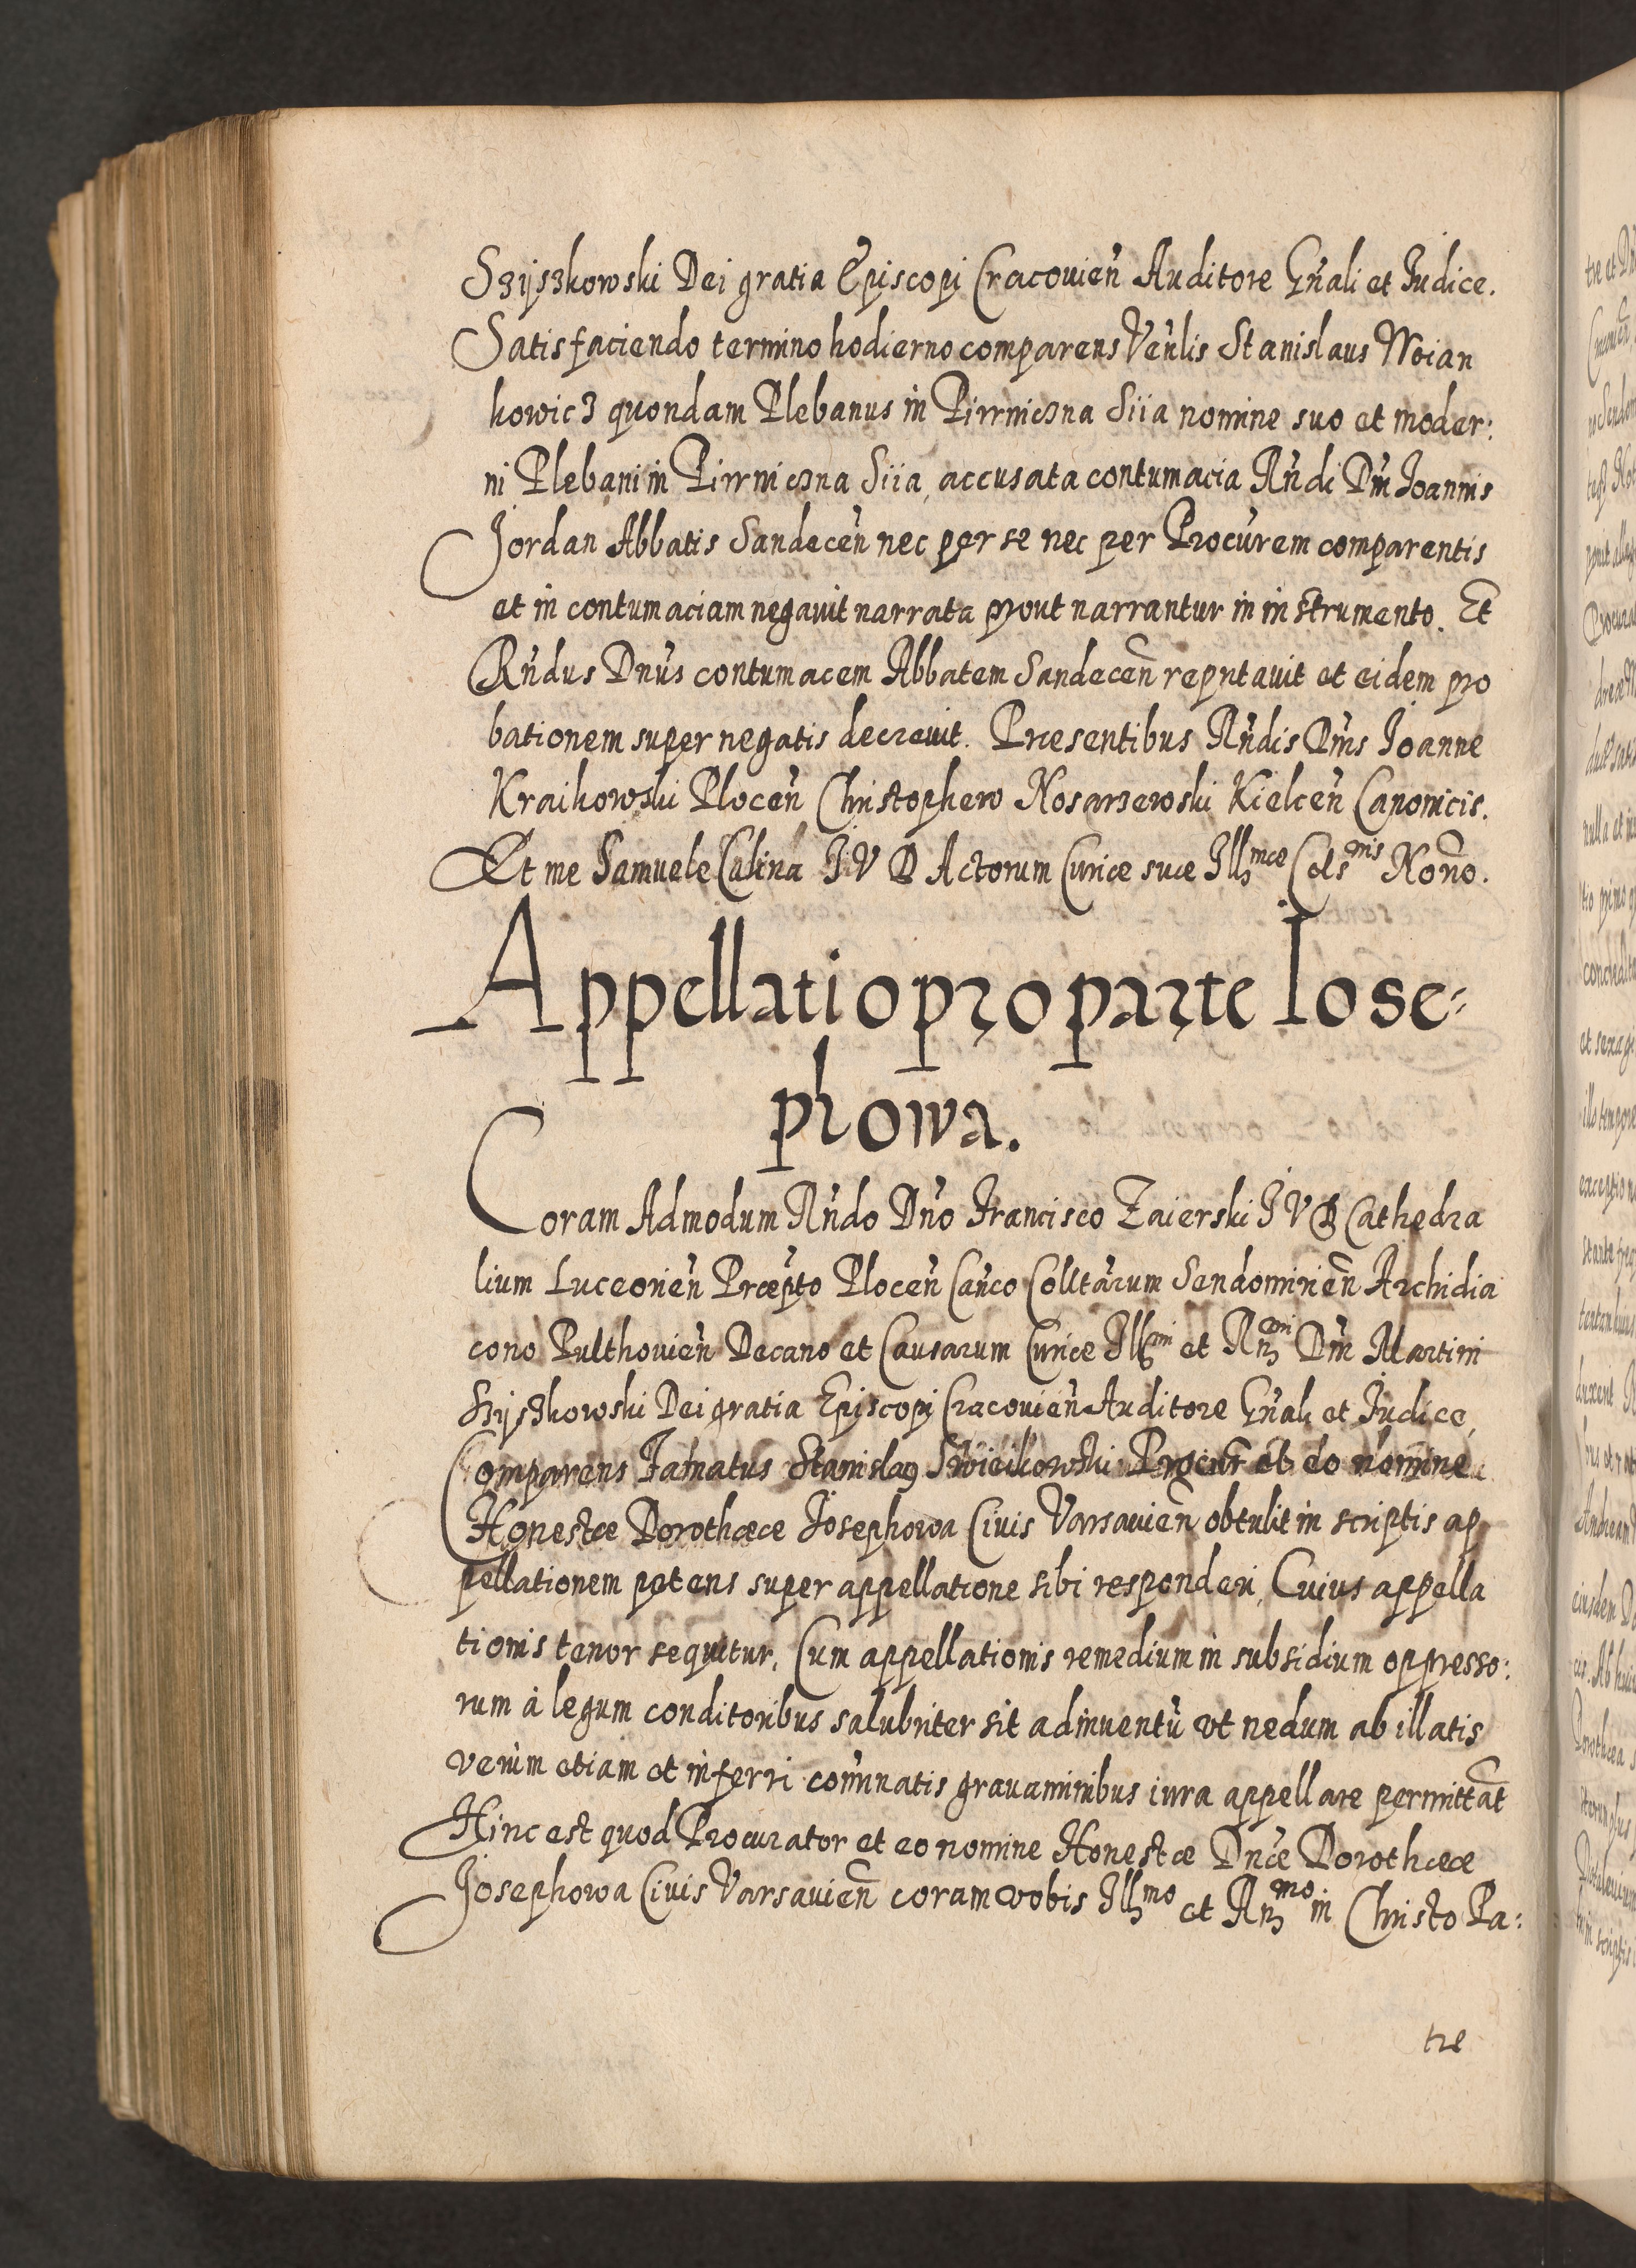 Szyszkowski Dei gratia Episcopi Cracovien̄ Auditore Gn̄ali et Iudice.
Satisfaciendo termino hodierno comparens Ven̄lis Stanislaus Woian
kowicz quondam Plebanus in Piwniczna Siia nomine suo et moder:
ni Plebani in Piwniczna Siia, accusata contumacia Rn̄di Dn̄i Joannis
Jordan Abbatis Sandecen̄ nec per se nec per Procūrem comparentis
et in contumaciam negavit narrata prout narrantur in instrumento. Et
Rn̄dus Dn̄us contumacem Abbatem Sandecen̄ reputavit et eidem pro
bationem super negatis decrevit. Præsentibus Rn̄dis Dn̄is Joanne
Kraikowski Plocen̄ Christophero Kosarzewski Kielcen̄ Canonicis.
Et me Samuele Calina J V D Actorum Curiæ suæ Illmæ Celsnis Nono.
Appellatio pro parte Iose-
phowa.
Coram Admodum Rn̄do Dn̄o Francisco Zaierski J V D Cathedra
lium Luceorien̄ Præp̄to Plocen̄ Can̄co Colltārum Sendomirien̄ Archidia
cono Pulthovien̄ Decano et Causarum Curiæ Illmi et Rmi Dn̄i Martini
Szyszkowski Dei gratia Episcopi Cracovien̄ Auditore Gn̄ali et Iudice,
Comparens Famatus Stanislaq Swiecikowski Procur et eo nomine
Honestæ Dorothææ Josephowa Civis Varsavien̄ obtulit in scriptis ap
pellationem petens super appellatione sibi responderi, Cuius appella
tionis tenor sequitur, Cum appellationis remedium in subsidium oppresso:
rum à legum conditoribus salubriter sit adinventū vt nedum ab illatis
verùm etiam et inferri com̄inatis gravaminibus iura appellare permittāt
Hinc est quod Procurator et eo nomine Honestæ Dn̄æ Dorothææ
Josephowa Civis Varsavien̄ coram vobis Illmo et Rmo in Christo Pa:
tre